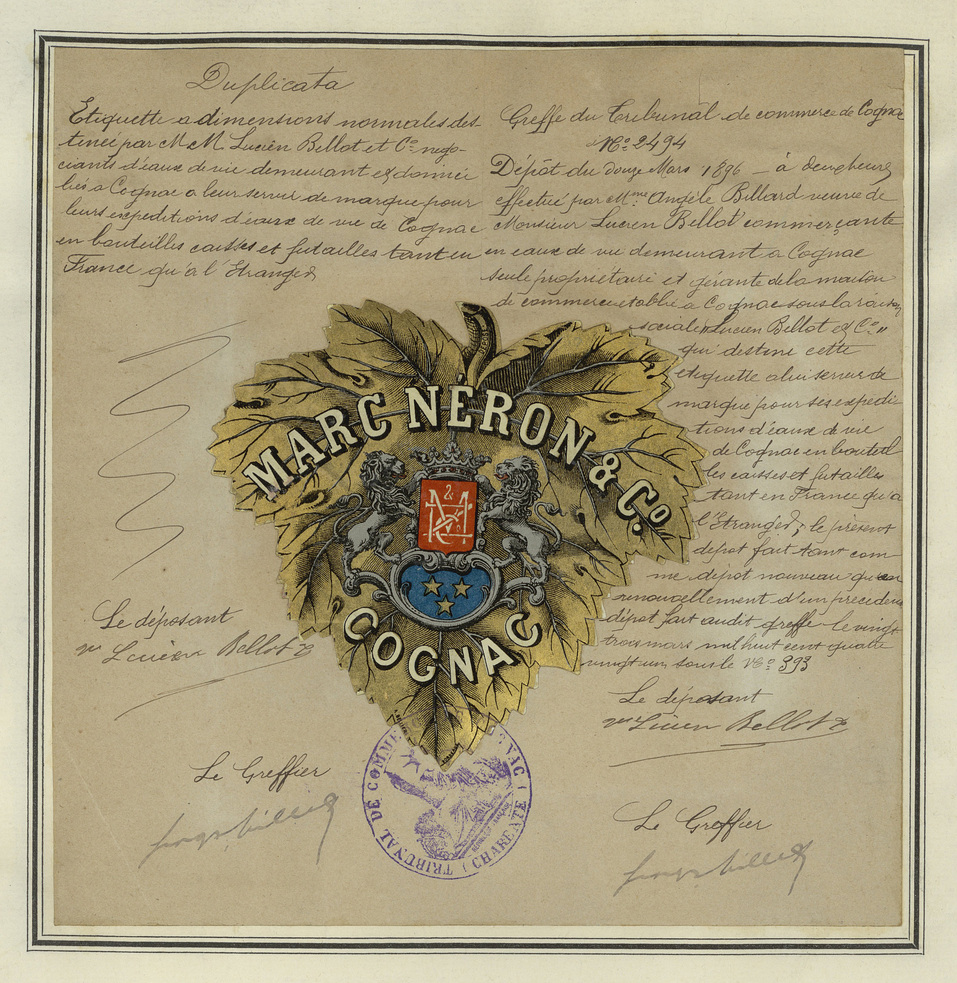 Duplicata
Etiquette a dimensions normales des-
tinée par M M Lucien Bellot et Co nego-
ciants d'eaux de vie demeurant et domici
liés a Cognac a leur servir de marque pour
leurs expeditions d'eaux de vie de Cognac
en bouteilles caisses et futailles tant en
France qu'à l'Etranger
Le déposant
Vve Lucien Bellot
Le Greffier
Greffe du Tribunal de commerce de Cognac
No 2494
Dépôt du douze Mars 1896 - à deux heures
effectué par Mme Angèle Billard veuve de
Monsieur Lucien Bellot commerçante
en eaux de vie demeurant a Cognac
seule propriétaire et gérante de la maison
de commerce etablie a Cognac sous la raison
sociale Lucien Bellot & Co "
qui destine cette
etiquette a lui servir de
marque pour ses expedi
tions d'eaux de vie
de Cognac en bouteil
les caisses et futailles
tant en France qu'a
l'Etranger; le present
depot fait tant com
me depot nouveau qu'en
renouvellement d'un precedent
dépot fait audit greffe le vingt
trois mars mil huit cent quatre
vingt un sous le No 393
Le déposant
Vve Lucien Bellot
Le Greffier
MARC NÉRON & Co.
COGNAC
TRIBUNAL DE COMMERCE COGNAC (CHARENTE)